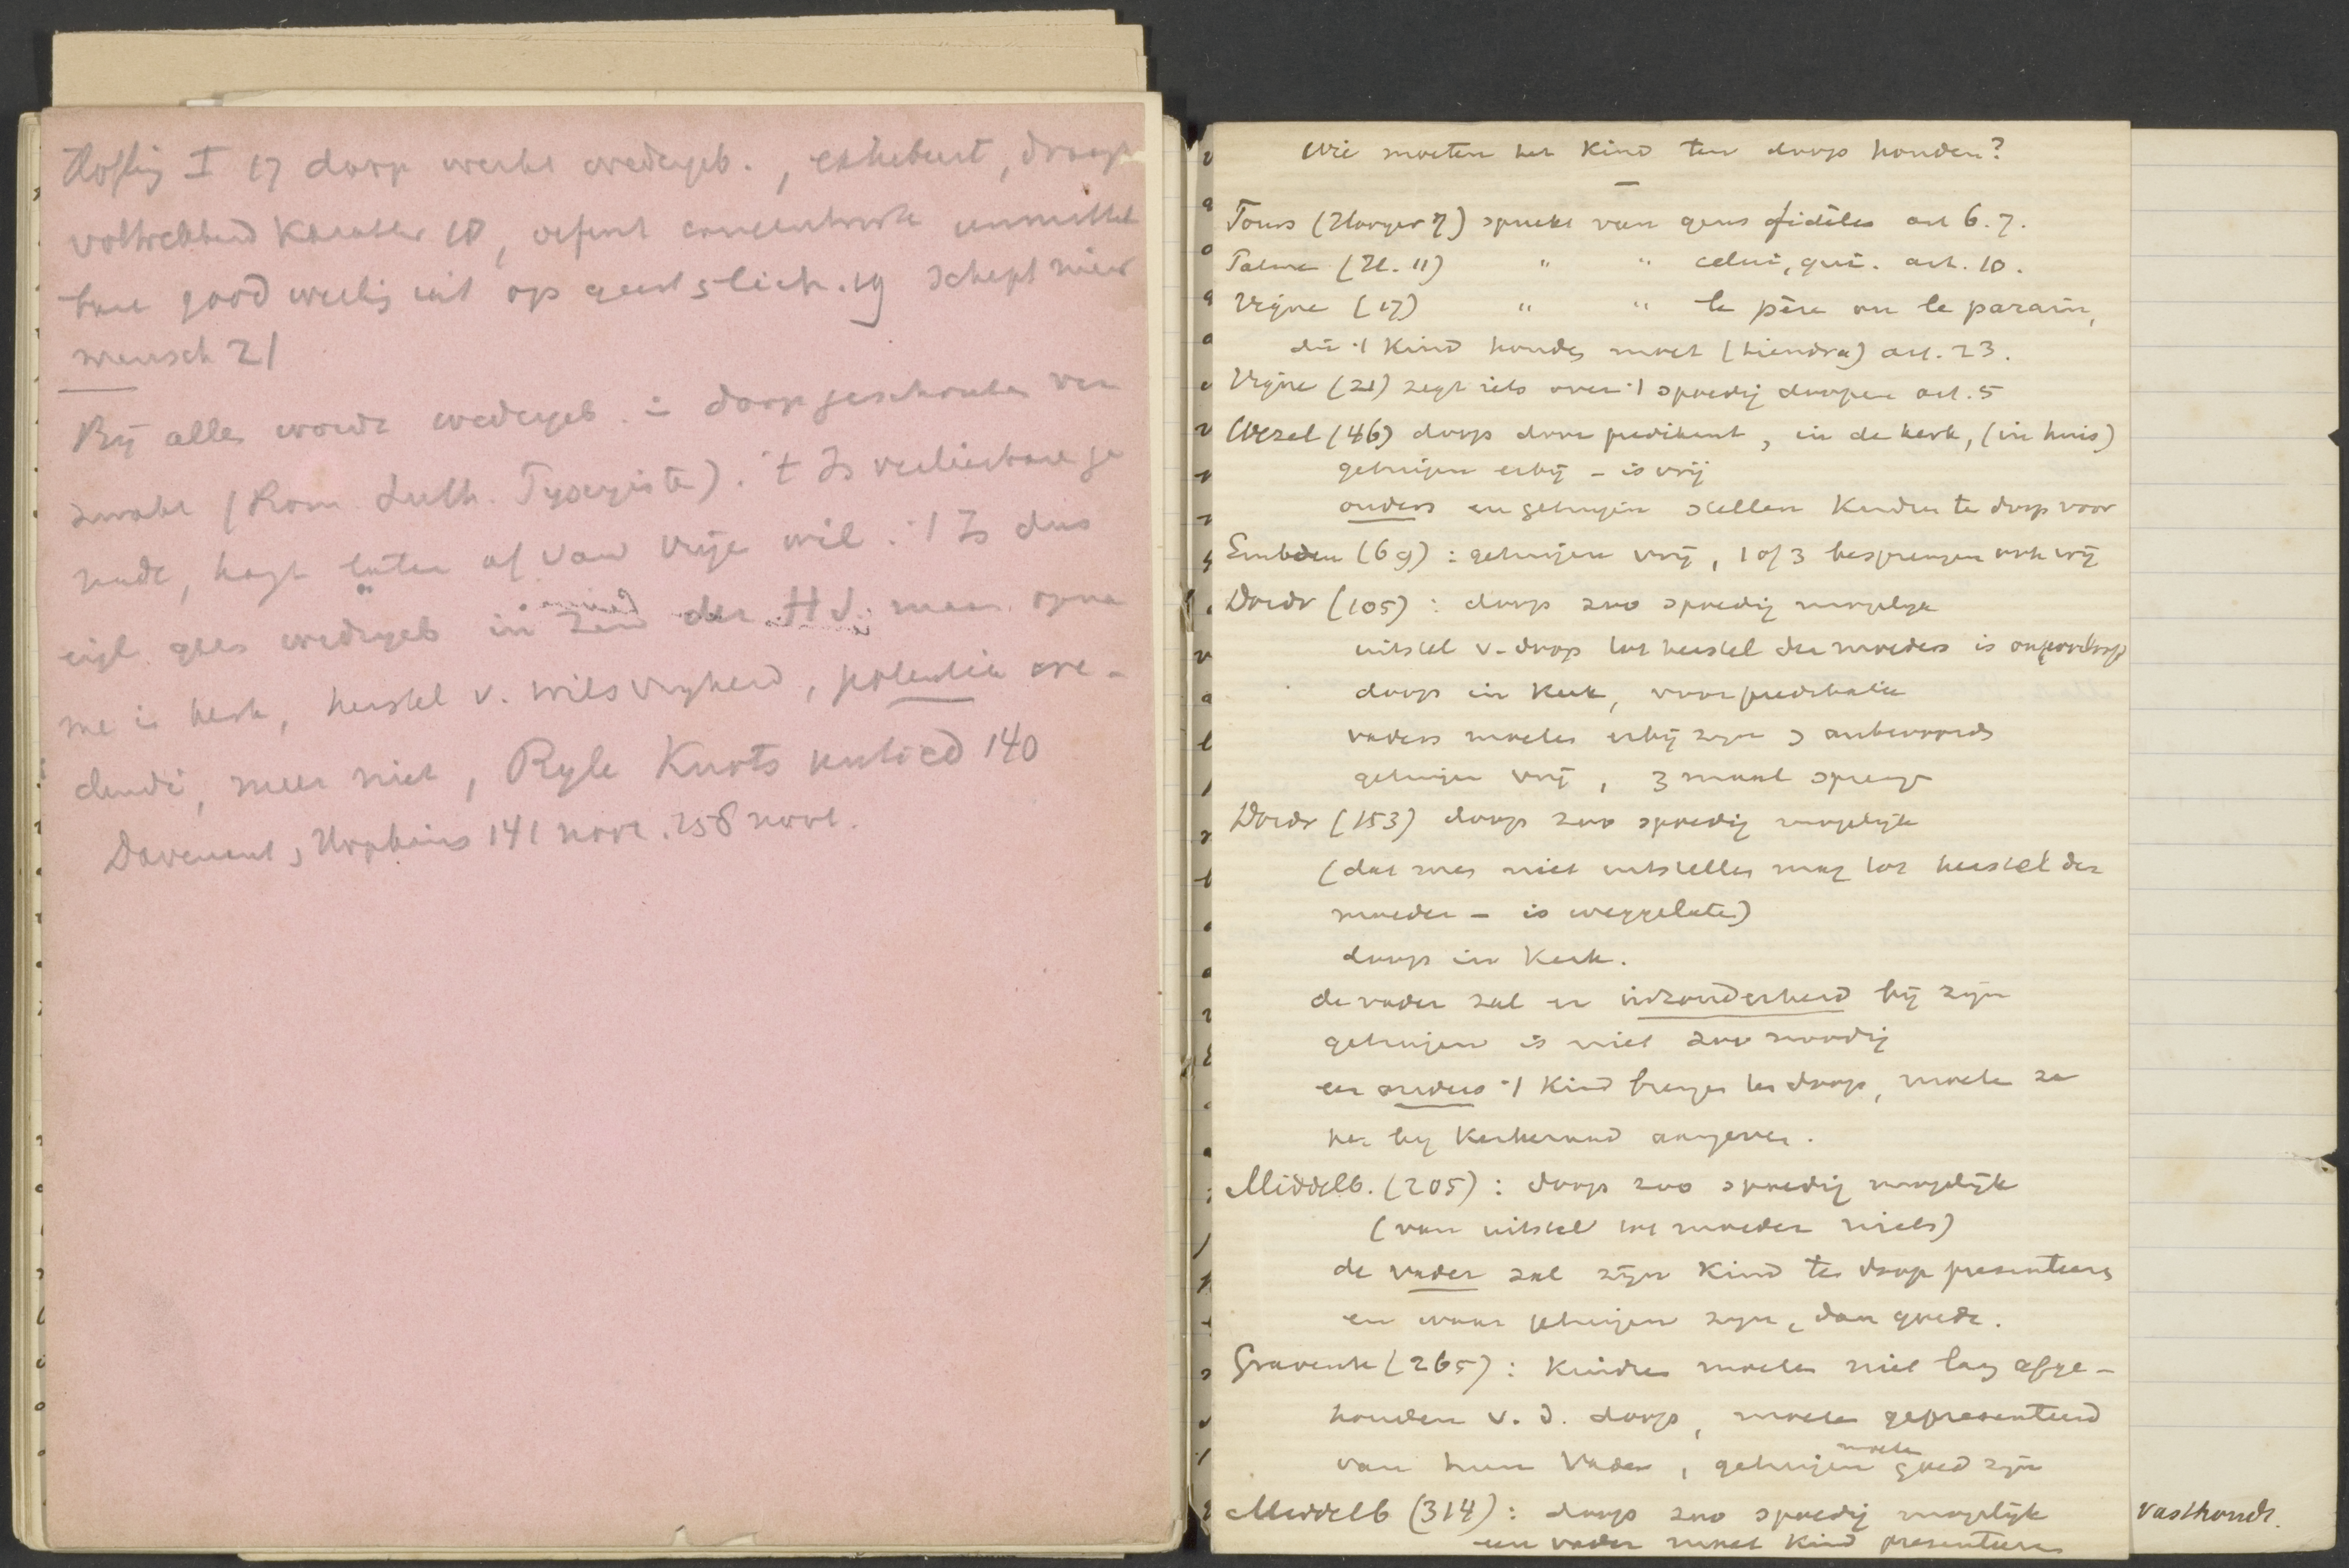 Höfling I 17 doop werkt wedergeb., exhibeert, draagt
voltrekkend karakter 18, oefent concentrisch unmittel
bare goddelijk uit op geest & lich. 19 schept nieuw
mensch 21
Bij alles wordt wedergeb. doop geschonken ver
zwakt (Rom. Luth. Puseyiste). 't Is verliesbare ge
nade, hangt later af van vrije wil. 't Is dus
eigl. geen wedergeb in zin der H S. maar opna
me in kerk, herstel v. wilsvrijheid, potentia cre-
dendi, meer niet, Ryle Knots untied 140
Davenant, Hopkins 141 noot. 258 noot.
Wie moeten het kind ten doop houden?
Tours (Hooyer 7) spreekt van gens fidèles art 6. 7.
(H. 11) " " celui, qui. art. 10.
Vigne (17) " " le père ou le parain,
die 't kind houden moet (tiendra) art. 23.
Vigne (21) zegt iets over 't spoedig doopen art. 5
Wezel (46) doop door predikant, in de kerk, (in huis)
getuigen erbij - is vrij
ouders en getuigen stellen kinderen ten doop voor
Embden (69): getuigen vrij, 1 of 3 besprengen ook vrij
Dordr (105): doop zoo spoedig mogelijk
uitstel v. doop tot herstel der moeders is ongeoorloofd
doop in kerk, voor predikatie
vaders moeten erbij zijn & antwoorden
getuigen vrij, 3 maal sprengen
Dordr (153) doop zoo spoedig mogelijk
(dat men niet uitstellen mag tot herstel der
moeder - is weggelaten)
doop in kerk.
de vader zal er inzonderheid bij zijn
getuigen is niet zoo noodig
eer ouders 't kind brengen ten doop, moeten ze
het bij kerkeraad aangeven.
Middelb. (205): doop zoo spoedig mogelijk
(van uitstel tot moeder niets)
de vader zal zijn kind ten doop presenteeren
en waar getuigen zijn, dan goede.
Gravenh (265): kindren moeten niet lang afge-
houden v. d. doop, moeten gepresenteerd
van hun Vader, getuigen moeten goed zijn
Middelb (314): doop zoo spoedig mogelijk
een vader moet kind presenteeren
vasthoudt.